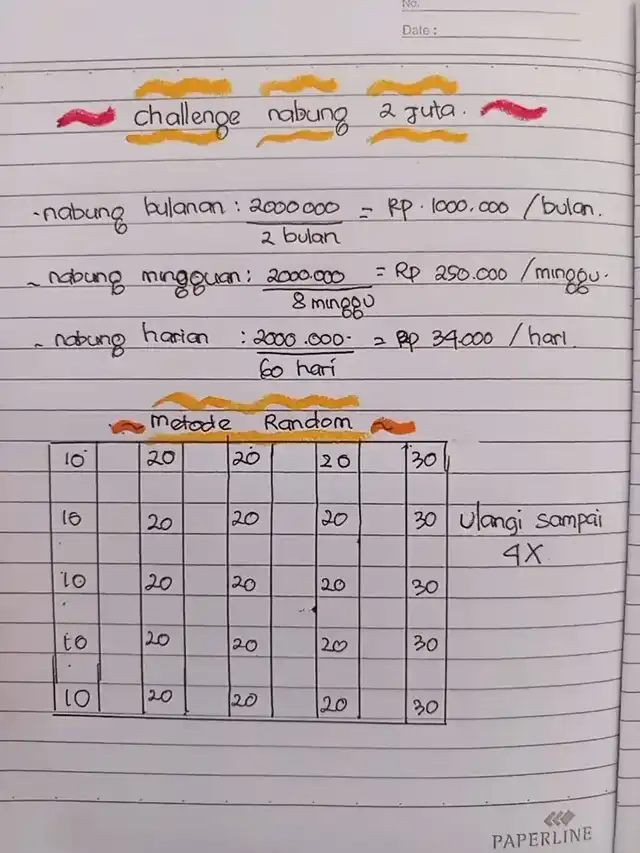 No.
Date :
challenge nabung 2 Juta.
- nabung bulanan : 2000000 = Rp. 1000.000 / bulan.
2 bulan
~ nabung mingguan : 2000.000 = Rp 250.000 / minggu.
8 minggu
~ nabung harian : 2000.000. = Rp 34.000 / hari.
60 hari
metode Random
10 20 20 20 30
10 20 20 20 30 ulangi sampai
4X
10 20 20 20 30
10 20 20 20 30
10 20 20 20 30
PAPERLINE